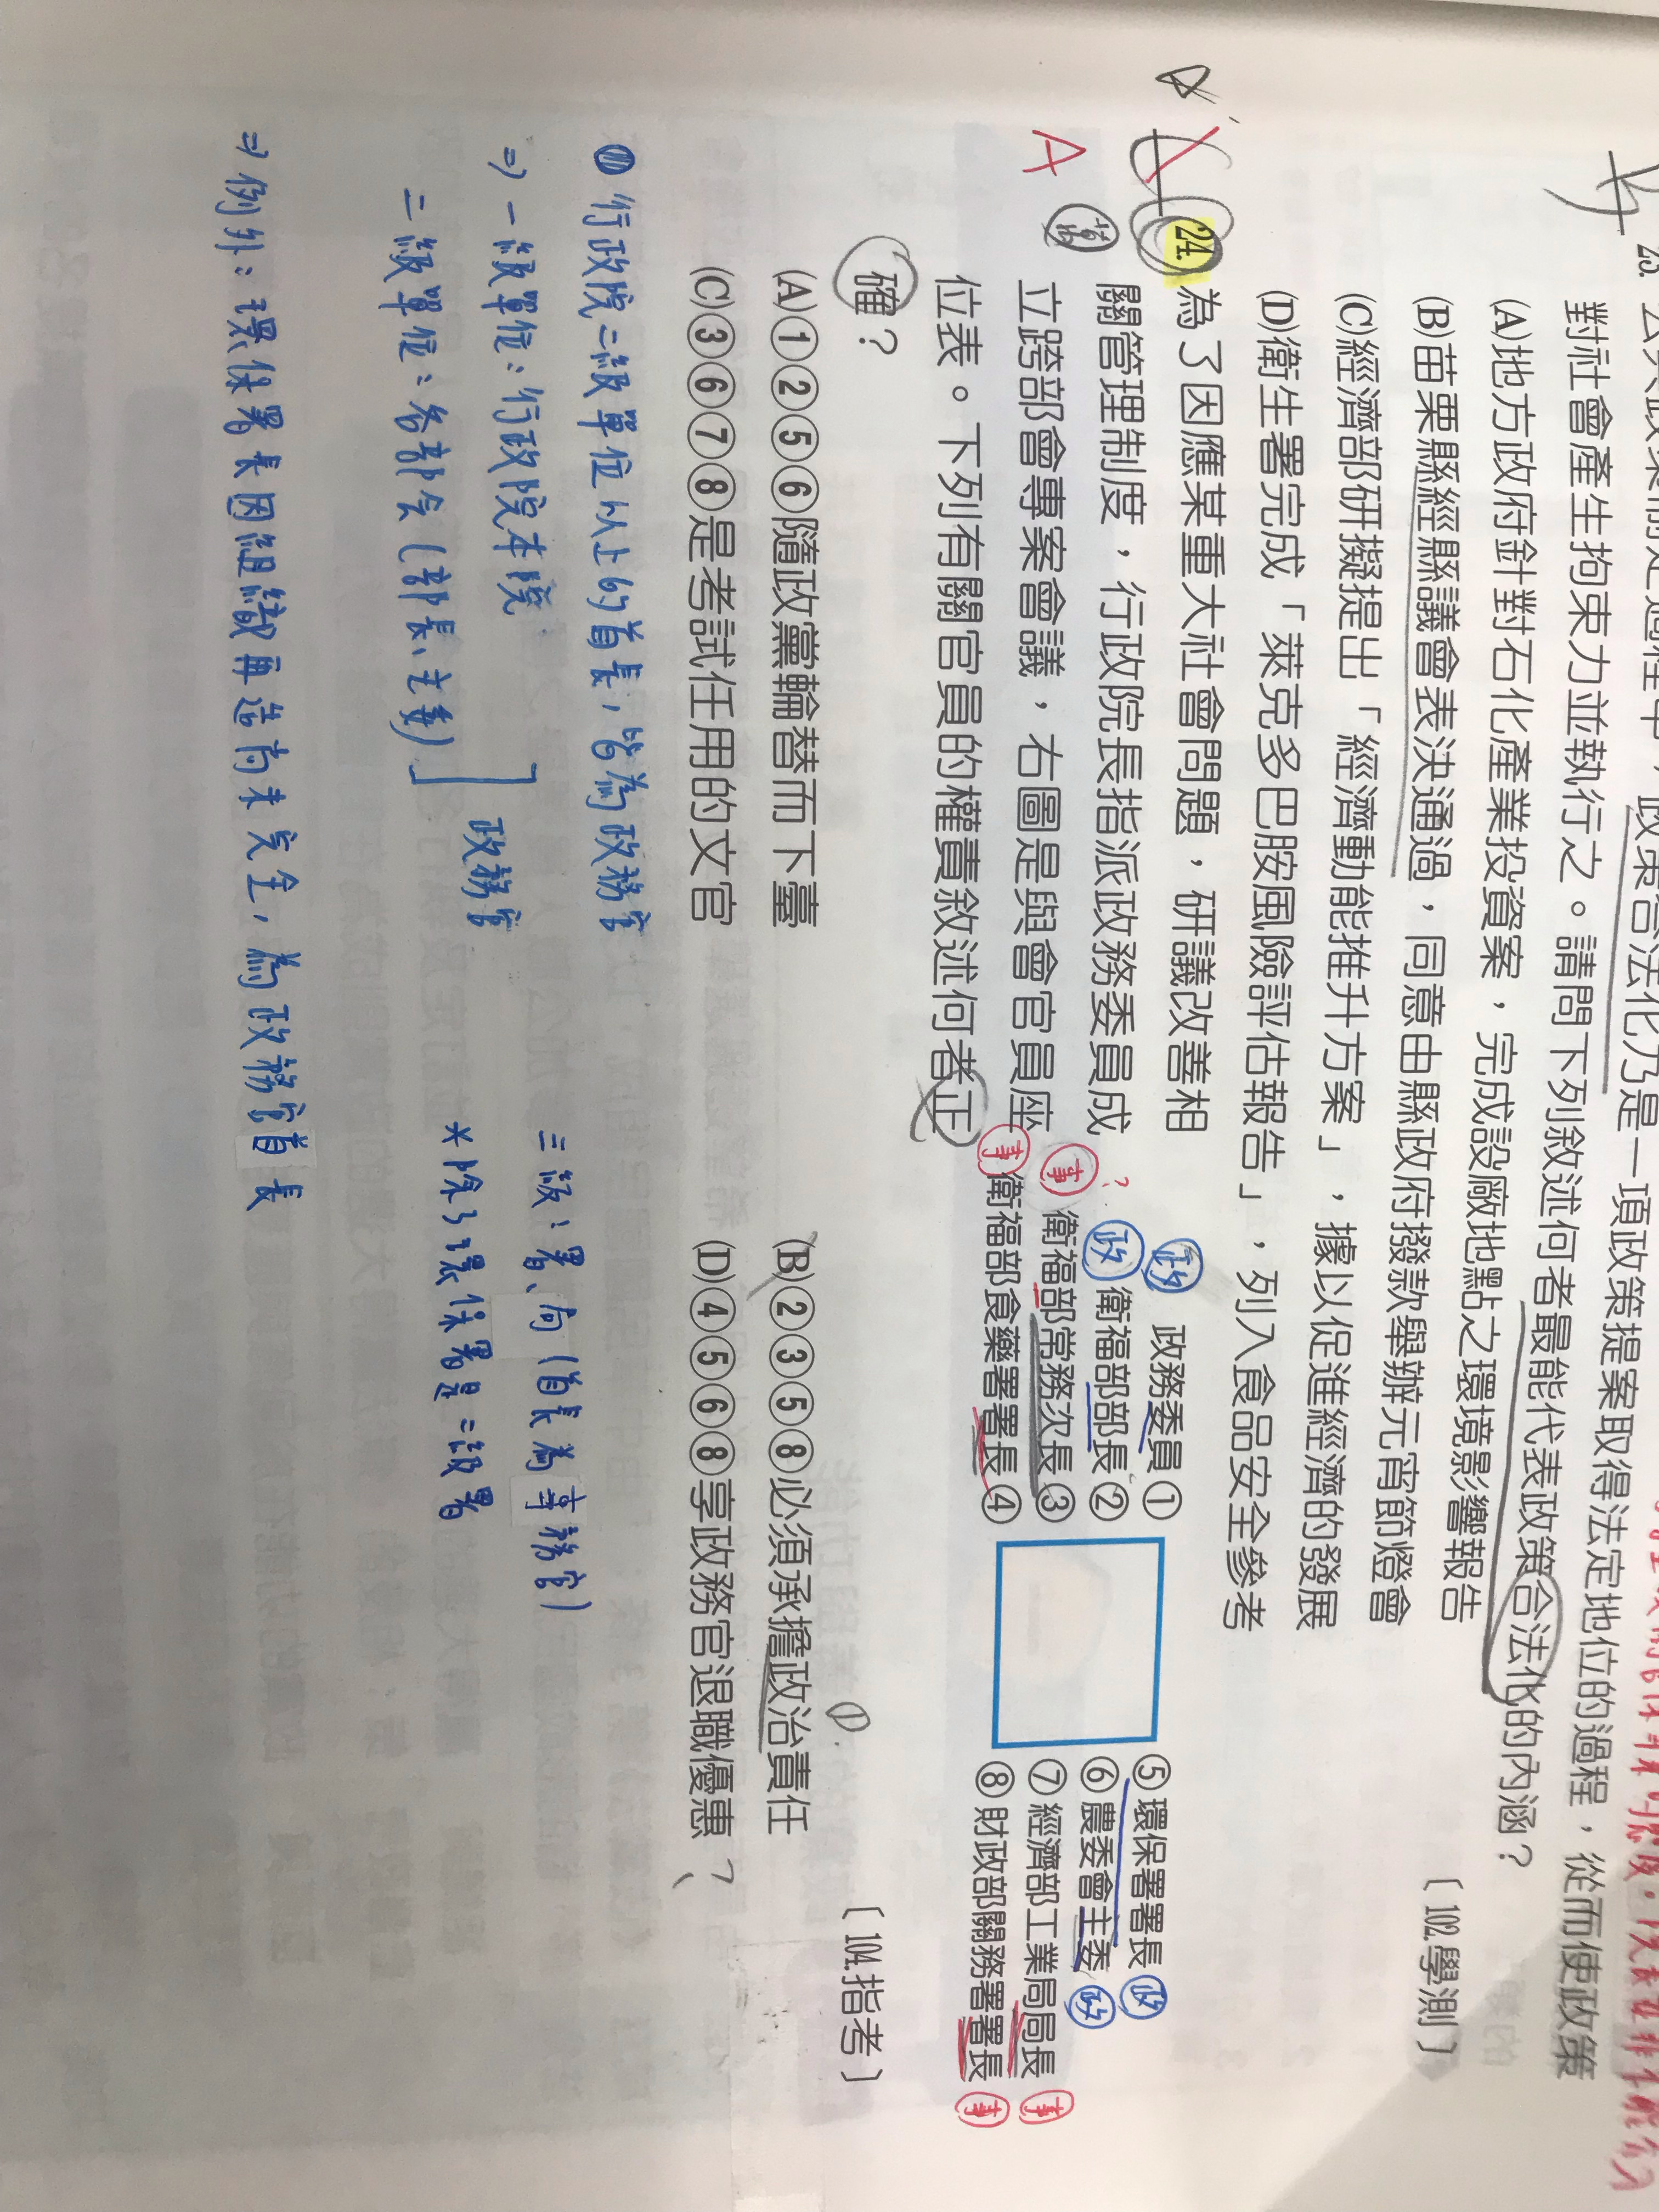 對社會產生拘束力並執行之。請問下列敘述何者最能代表政策合法化的內涵?
(A)地方政府針對石化產業投資案,完成設廠地點之環境影響報告
(B)苗栗縣經縣議會表決通過,同意由縣政府撥款舉辦元宵節燈會
(C)經濟部研擬提出「經濟動能推升方案」,據以促進經濟的發展
(D)衛生署完成「萊克多巴胺風險評估報告」,列入食品安全參考
〔102.學測〕
A
24.為了因應某重大社會問題,研議改善相
關管理制度,行政院長指派政務委員成
立跨部會專案會議,右圖是與會官員座
位表。下列有關官員的權責敘述何者正
確?
〔104.指考〕
政 政務委員①
政 衛福部部長②
? 事 衛福部常務次長③
事 衛福部食藥署署長④
⑤環保署署長 政
⑥農委會主委 政
⑦經濟部工業局局長 事
⑧財政部關務署署長 事
(A)①②⑤⑥隨政黨輪替而下臺
(B)②③⑤⑧必須承擔政治責任
(C)③⑥⑦⑧是考試任用的文官
(D)④⑤⑥⑧享政務官退職優惠
行政院二級單位以上的首長,皆為政務官
⇒一級單位:行政院本院
二級單位:各部会(部長、主委)
政務官
三級:署、局(首長為事務官)
*除了環保署是二級署
⇒例外:環保署長因組織再造尚未完全,為政務官首長